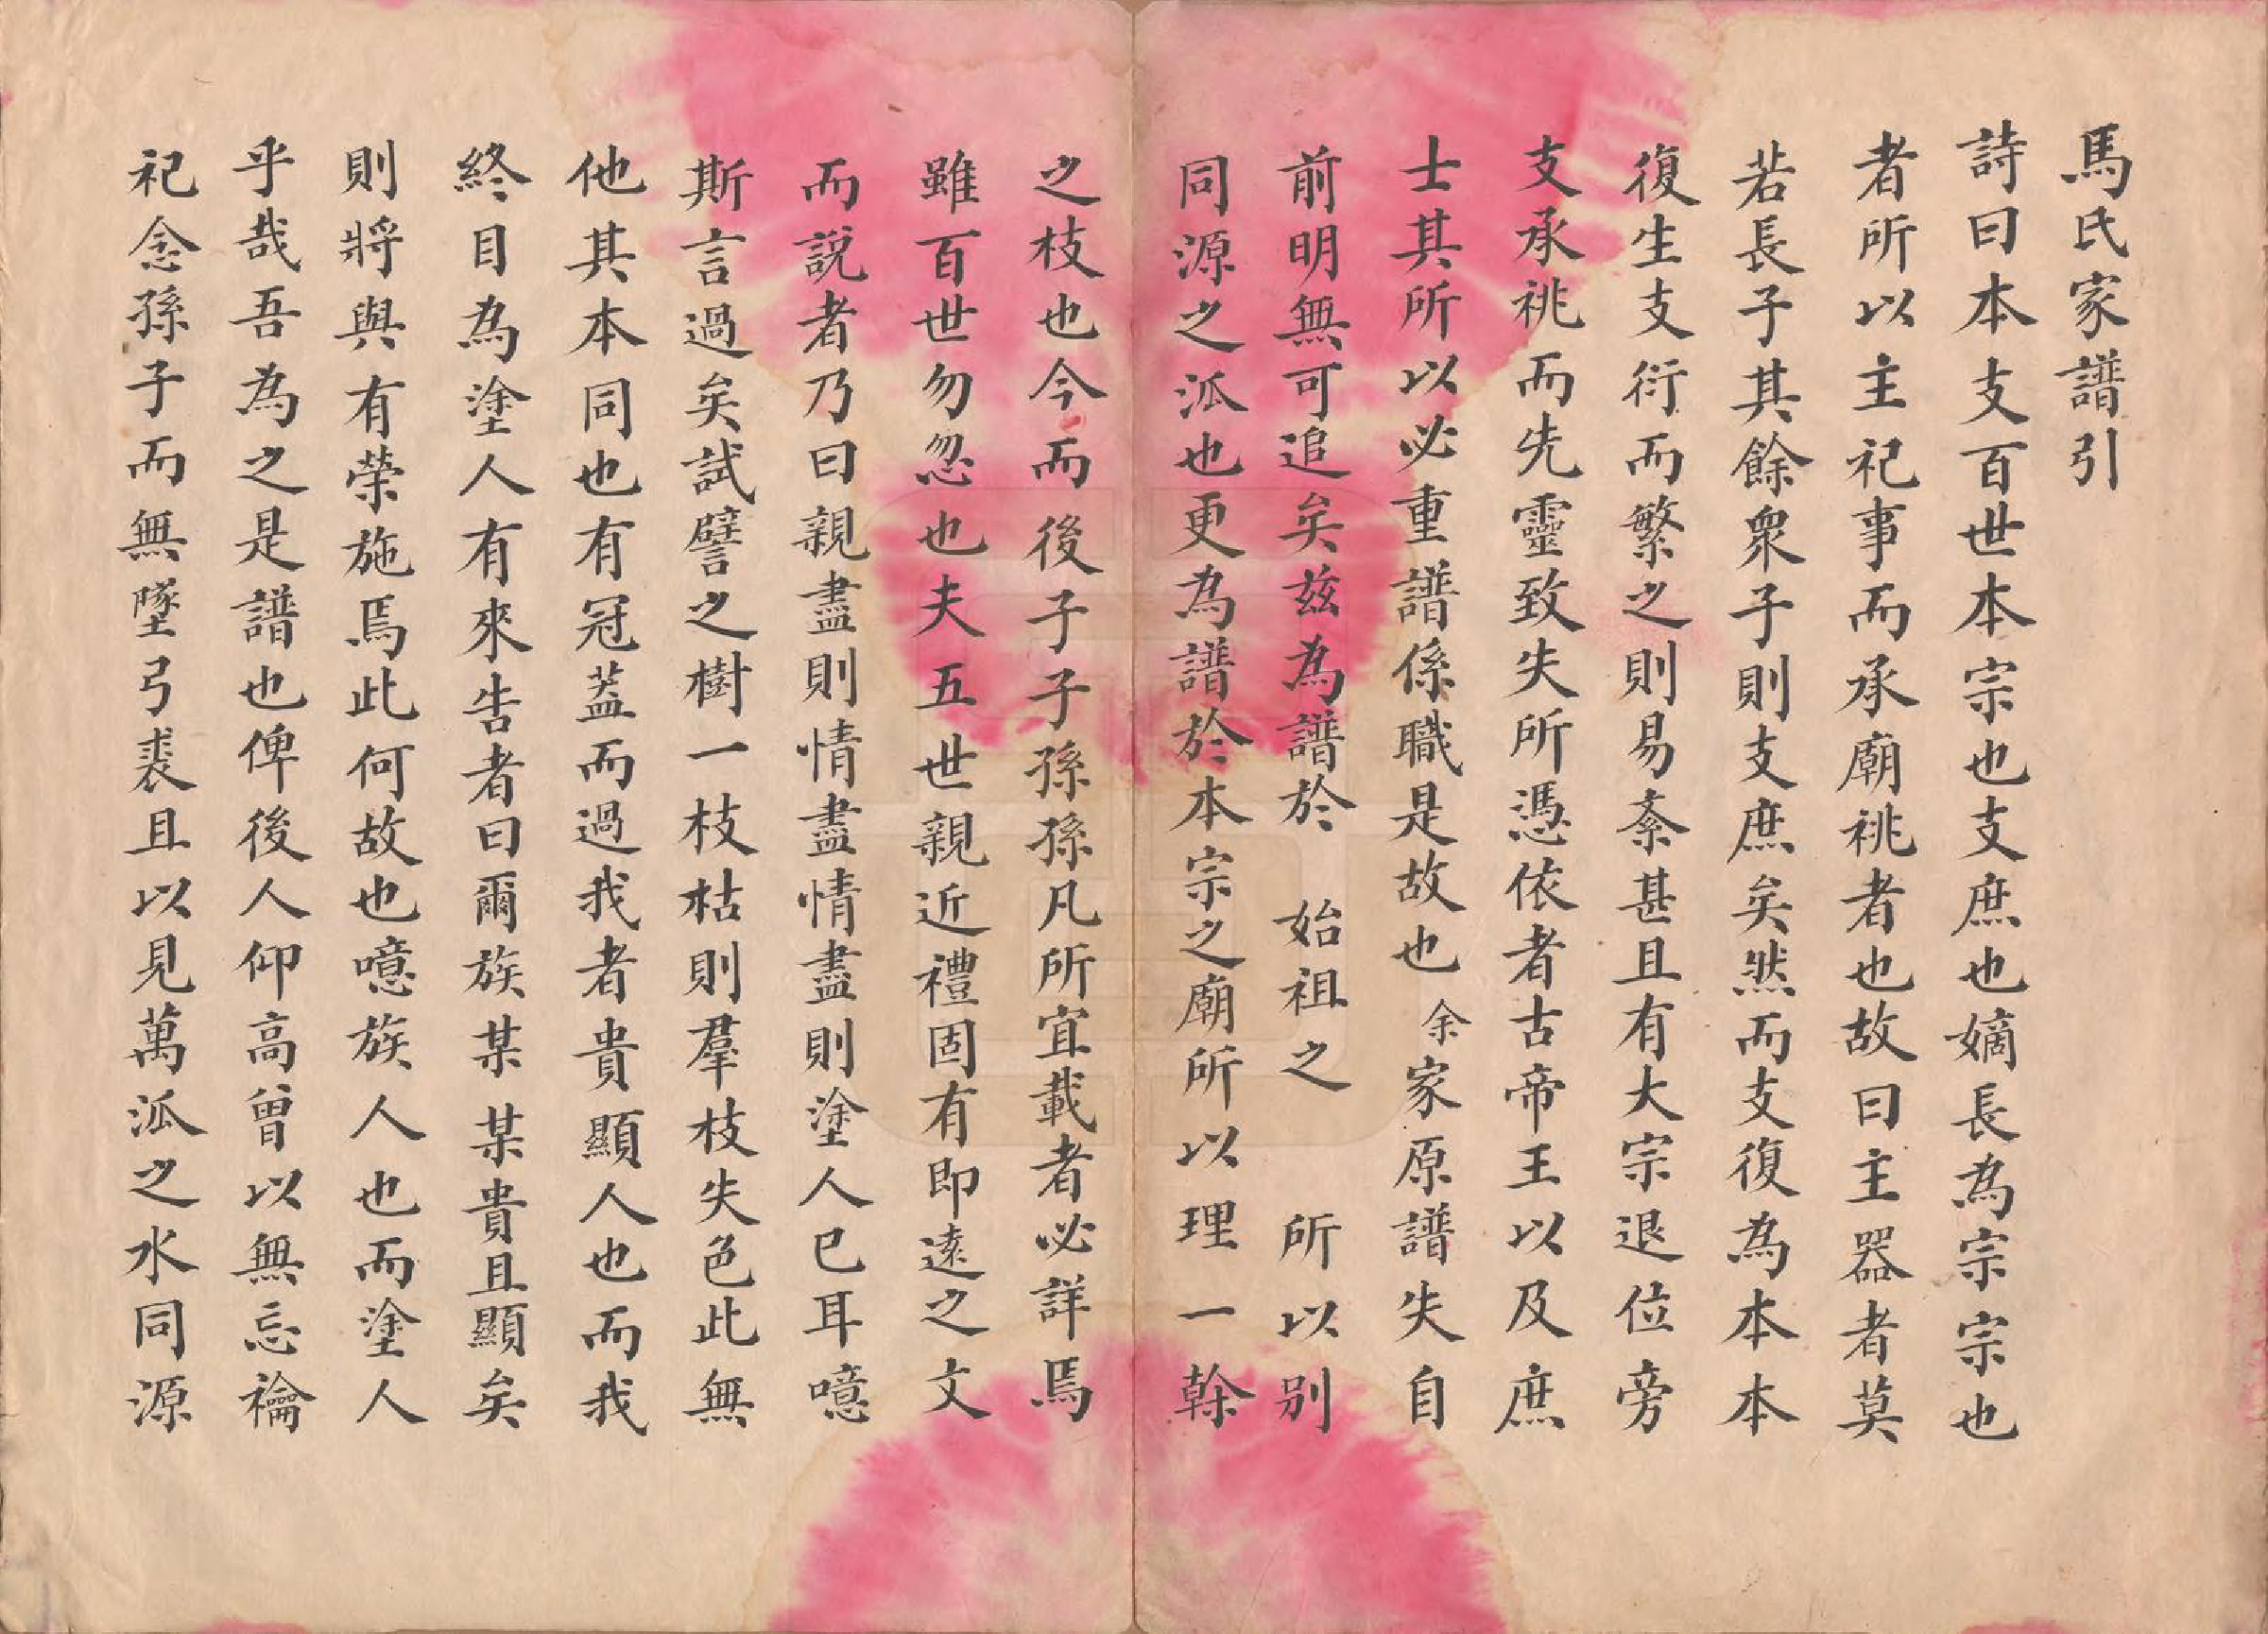 馬氏家譜引
詩曰本支百世本宗也支庶也嫡長為宗宗也
者所以主祀事而承廟祧者也故曰主器者莫
若長子其餘衆子則支庶矣然而支復為本本
復生支衍而繁之則易紊甚且有大宗退位旁
支承祧而先靈致失所憑依者古帝王以及庶
士其所以必重譜係職是故也余家原譜失自
前明無可追矣兹為譜於 始祖之 所以别
同源之泒也更為譜於本宗之廟所以理一榦
之枝也今而後子子孫孫凡所宜載者必詳焉
雖百世勿忽也夫五世親近禮固有即遠之文
而說者乃曰親盡則情盡情盡則塗人已耳噫
斯言過矣試譬之樹一枝枯則羣枝失色此無
他其本同也有冠葢而過我者貴顯人也而我
終目為塗人有來告者曰爾族某某貴且顯矣
則將與有榮施焉此何故也噫族人也而塗人
乎哉吾為之是譜也俾後人仰高曾以無忘禴
祀念孫子而無墜弓裘且以見萬泒之水同源